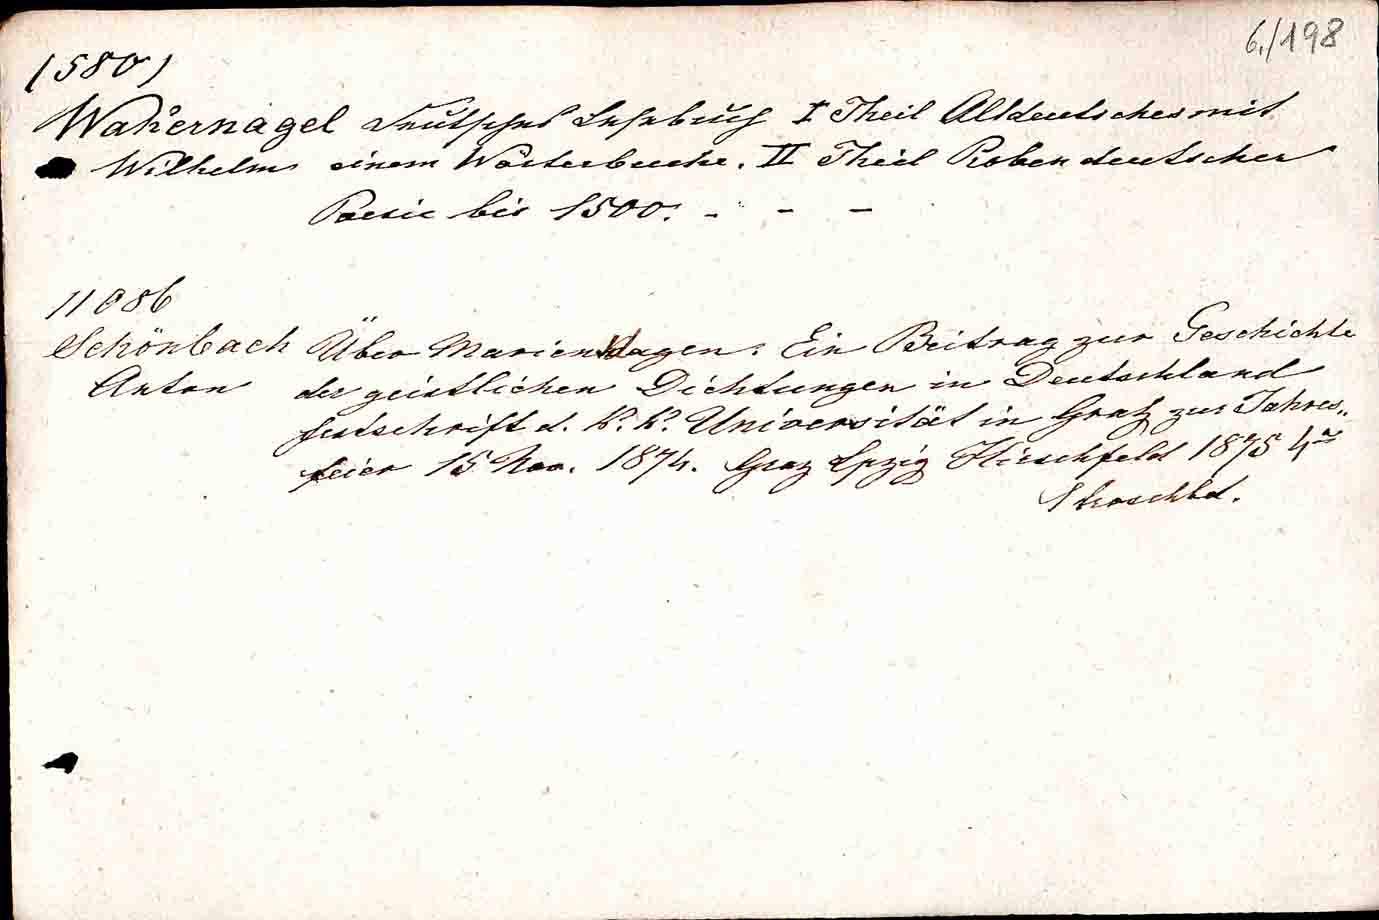 6./198
(580)
Wakernagel Deutsches Lesebuch I Theil Altdeutsches mit
Wilhelm einem Wörterbuche. II Theil Proben deutscher
Poesie bis 1500. - - -
11086
Schönbach Über Marienklagen. Ein Beitrag zur Geschichte
Anton der geistlichen Dichtungen in Deutschland
Festschrift d. K. K. Universität in Graz zur Jahres-
feier 15 Nov. 1874. Graz Lpzig Hirschfeld 1875 4°